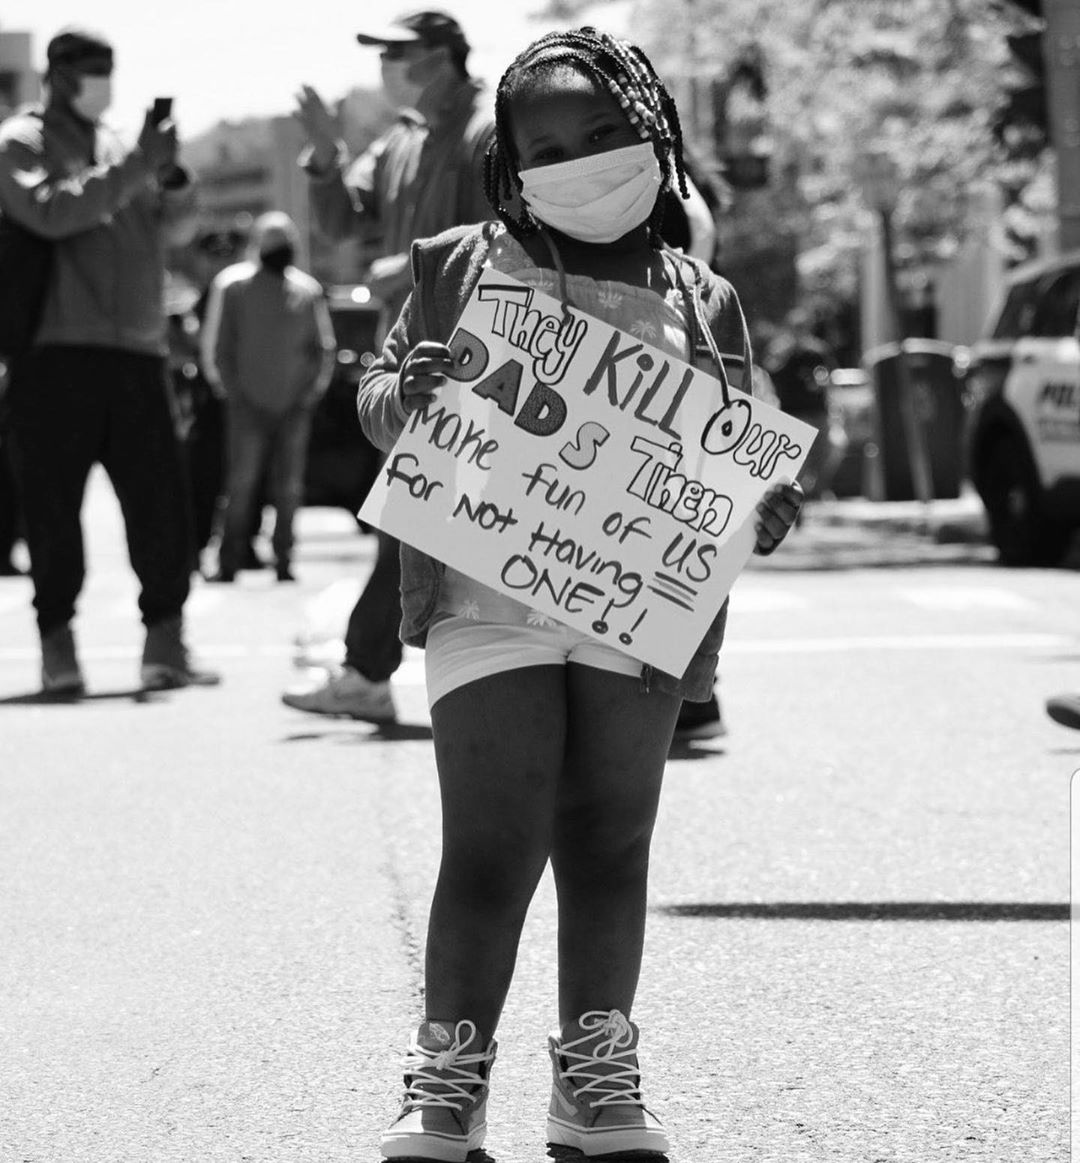 They Kill Our
DADs Then
Make fun of US
For Not Having
ONE!!